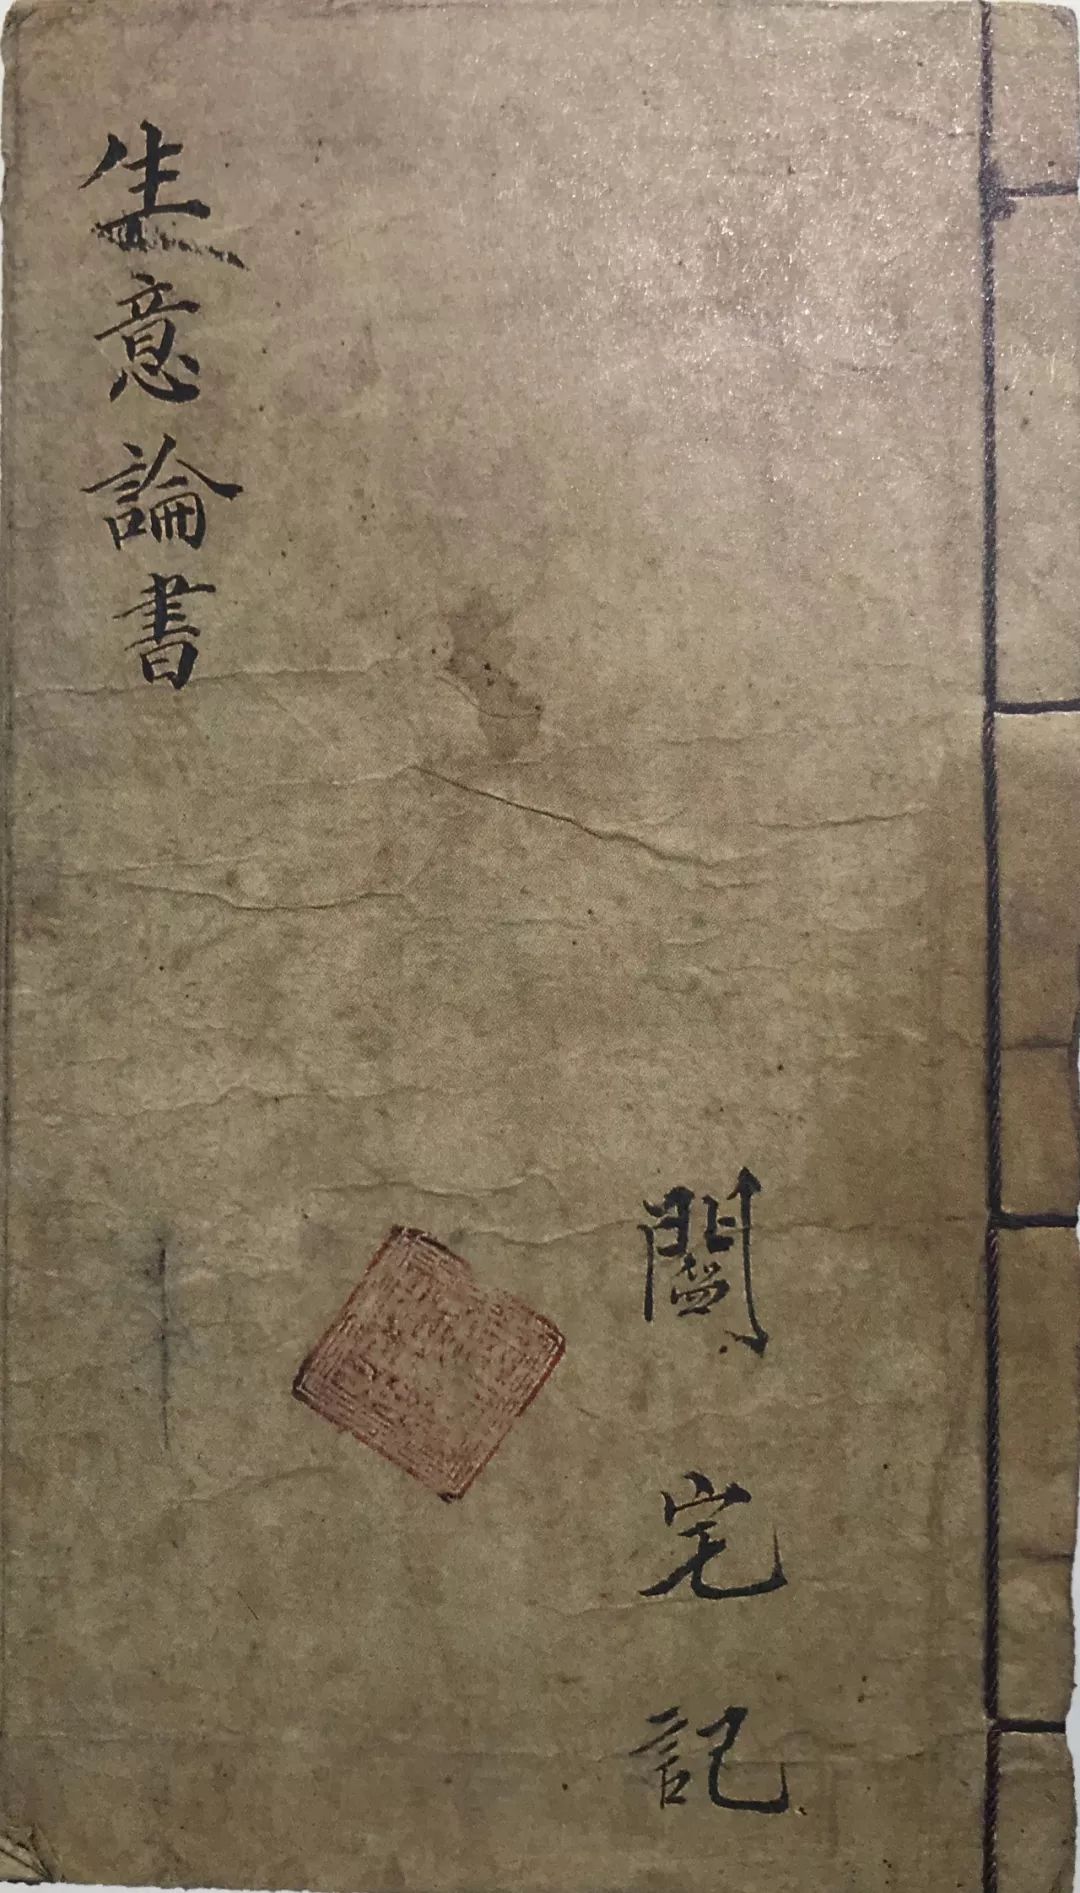 生意論書
闔宅記